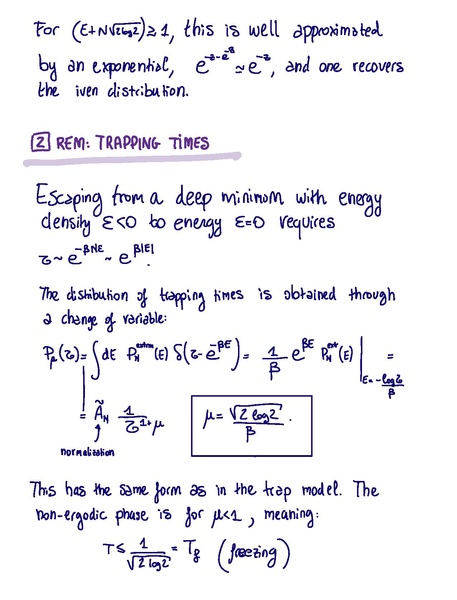 For (E+N√2log2)≥1, this is well approximated
by an exponential, e^{-z-e^{-z}} ≃ e^{-z}, and one recovers
the iven distribution.
2 REM: TRAPPING TIMES
Escaping from a deep minimum with energy
density ε<0 to energy ε=0 requires
τ ~ e^{-βNε} ~ e^{β|E|}.
The distribution of trapping times is obtained through
a change of variable:
P_μ(τ) = ∫dE P_N^{extrm}(E) δ(τ-e^{-βE}) = 1/β e^{βE} P_N^{ext}(E) |_{E=-logτ/β} =
= Ã_N 1/τ^{1+μ} μ = √2log2/β.
normalization
This has the same form as in the trap model. The
non-ergodic phase is for μ<1, meaning:
T≤ 1/√2log2 = T_f (freezing)